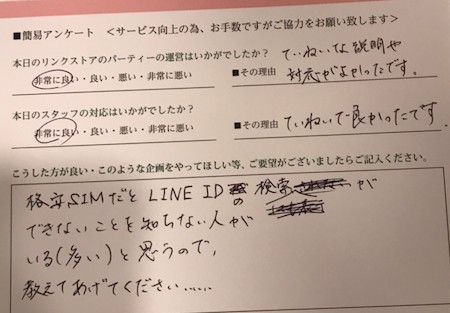 ■簡易アンケート　＜サービス向上の為、お手数ですがご協力をお願い致します＞
本日のリンクストアのパーティーの運営はいかがでしたか？
非常に良い・良い・悪い・非常に悪い
■その理由　ていねいな説明や
対応がよかったです。
本日のスタッフの対応はいかがでしたか？
非常に良い・良い・悪い・非常に悪い
■その理由　ていねいで良かったです。
こうした方が良い・このような企画をやってほしい等、ご要望がございましたらご記入ください。
格安SIMだと LINE IDの 検索が
できないことを知らない人が
いる(多い)と思うので、
教えてあげてください.....